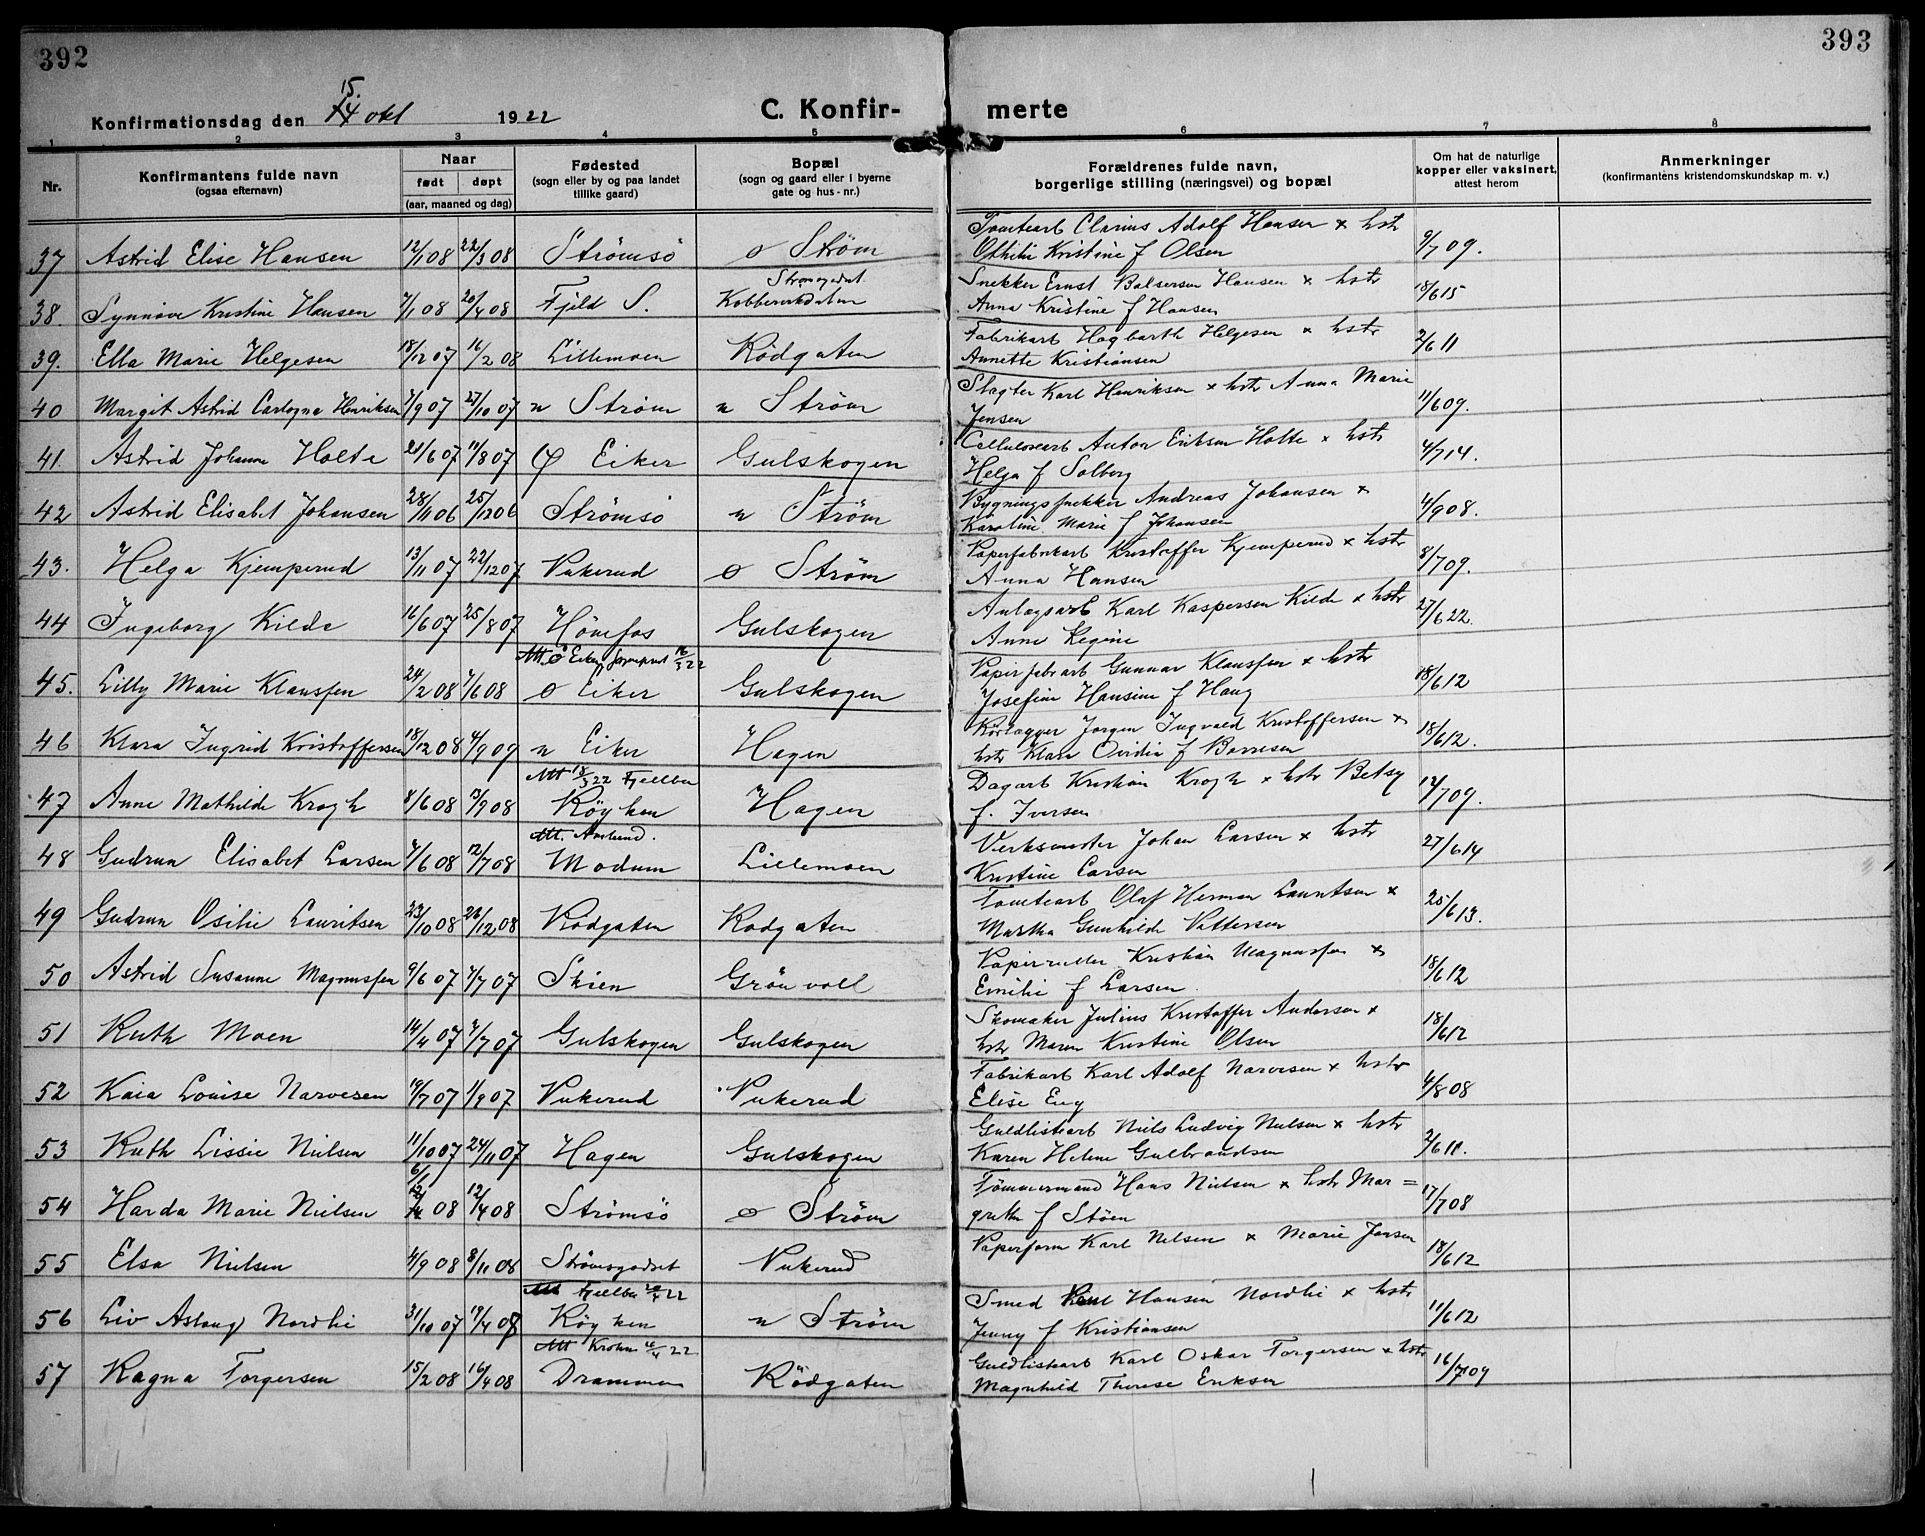 392
393
15.
Konfirmationsdag den 14 okt 1922
C. Konfir-
merte
1 2 3 4 5 6 7 8
Nr.
Konfirmantens fulde navn
(ogsaa efternavn)
Naar
født døpt
(aar, maaned og dag)
Fødested
(sogn eller by og paa landet
tillike gaard)
Bopæl
(sogn og gaard eller i byerne
gate og hus-nr.)
Forældrenes fulde navn,
borgerlige stilling (næringsvei) og bopæl
Om hat de naturlige
kopper eller vaksinert,
attest herom
Anmerkninger
(konfirmantens kristendomskundskap m. v.)
37 Astrid Elise Hansen 12/1 08 22/3 08 Strømsø ø Strøm
Tomtearb Clarius Adolf Hansen x hstr
Othilie Kristine f Olsen 9/7 09.
38. Synnøve Kristine Hansen 7/1 08 20/4 08 Fjeld S.
Snekker Ernst Balsersen Hansen x hstr
Anna Kristine f Hansen 18/6 15
39. Ella Marie Helgesen 18/12 07 16/2 08 Lillemoen Rödgaten
Fabrikarb Hagbarth Helgesen x hstr
Annette Kristiansen 2/6 11
40 Margit Astrid Henriksen 7/9 07 27/10 07 n Strøm n Strøm
Slagter Karl Henriksen x hstr Anna Marie
Jensen 11/6 09.
41. Astrid Johanne Holte 20/6 07 11/8 07 Ø Eiker Gulskogen
Cellulosearb Anton Eriksen Holte x hstr
Helga f Solberg 4/7 14.
42 Astrid Elisabet Johansen 28/11 06 25/12 06 Strømsø n Strøm
Bygningssnekker Andreas Johansen x
Karoline Marie f Johansen 4/9 08.
43. Helga Kjemperud 13/11 07 22/12 07 Vukerud ø Strøm
Papirfabrikarb Kristoffer Kjemperud x hstr
Anna Hansen 8/7 09.
44 Ingeborg Kilde 16/6 07 25/8 07 Hönefos Gulskogen
Anlægsarb Karl Kaspersen Kilde x hstr
Anne Regine 27/6 22.
45. Lilly Marie Klaussen 24/2 08 7/6 08 ø Eiker Gulskogen
Papirfabrarb Gunnar Klaussen x hstr
Josefine Hansine f Haug 18/6 12
46 Klara Ingrid Kristoffersen 18/12 08 4/9 09 n Eiker Hagen
Rørlægger Jørgen Ingvald Kristoffersen x
hstr Klara f 18/6 12.
Att 18/3 22 Fjellbu
47 Anne Mathilde Krogh 8/6 08 13/9 08 Røyken Hagen
Dagarb Kristian Krogh x hstr Betsy
f. Iversen 12/7 09.
48 Gudrun Elisabet Larsen 7/6 08 12/7 08 Modum Lillemoen
Verksmester Johan Larsen x hstr
Kristine Larsen 27/6 14
49 Gudrun Osilie Lauritsen 23/10 08 26/12 08 Rödgaten Rödgaten
Tomtearb Olaf Herman Lauritsen x
Martha Gunhilde Pettersen 25/6 13.
50 Astrid Susanne Magnussen 9/6 07 7/7 07 Skien Grönvoll
Kristian Magnussen x
Emilie f Larsen. 18/6 12
51 Ruth Moen 14/4 07 7/7 07 Gulskogen Gulskogen
Skomaker Julius Kristoffer Andersen x
hstr Maren Kristine Olsen 18/6 12
52 Kaia Louise Narvesen 19/7 07 1/9 07 Vukerud Vukerud
Fabrikarb Karl Adolf Narvesen x hstr
Elise Eng 4/8 08
53 Ruth Lissie Nielsen 11/10 07 24/11 07 Hagen Gulskogen
Guldlistearb Niels Ludvig Nielsen x hstr
Karen Helene Gulbrandsen 2/6 11.
54 Harda Marie Nielsen 08 12/4 08 Strømsø ø Strøm
Tømmermand Hans Nielsen x hstr Mar=
grethe f Støen 17/7 08
55 Elsa Nielsen 4/9 08 8/11 08 Strömsgodset Vukerud
Papirform Karl Nilsen x Marie Jansen
18/6 12
Att Fjellbu 22
56 Liv Aslaug Nordlie 31/10 07 19/4 08 Røyken n Strøm
Smed Hansen Nordlie x hstr
Jenny f Kristiansen 11/6 12
Att Krohn 22
57 Ragna Torgersen 15/2 08 16/4 08 Drammen Rödgaten
Guldlistearb Karl Oskar Torgersen x hstr
Magnhild Therese Eriksen 16/7 09